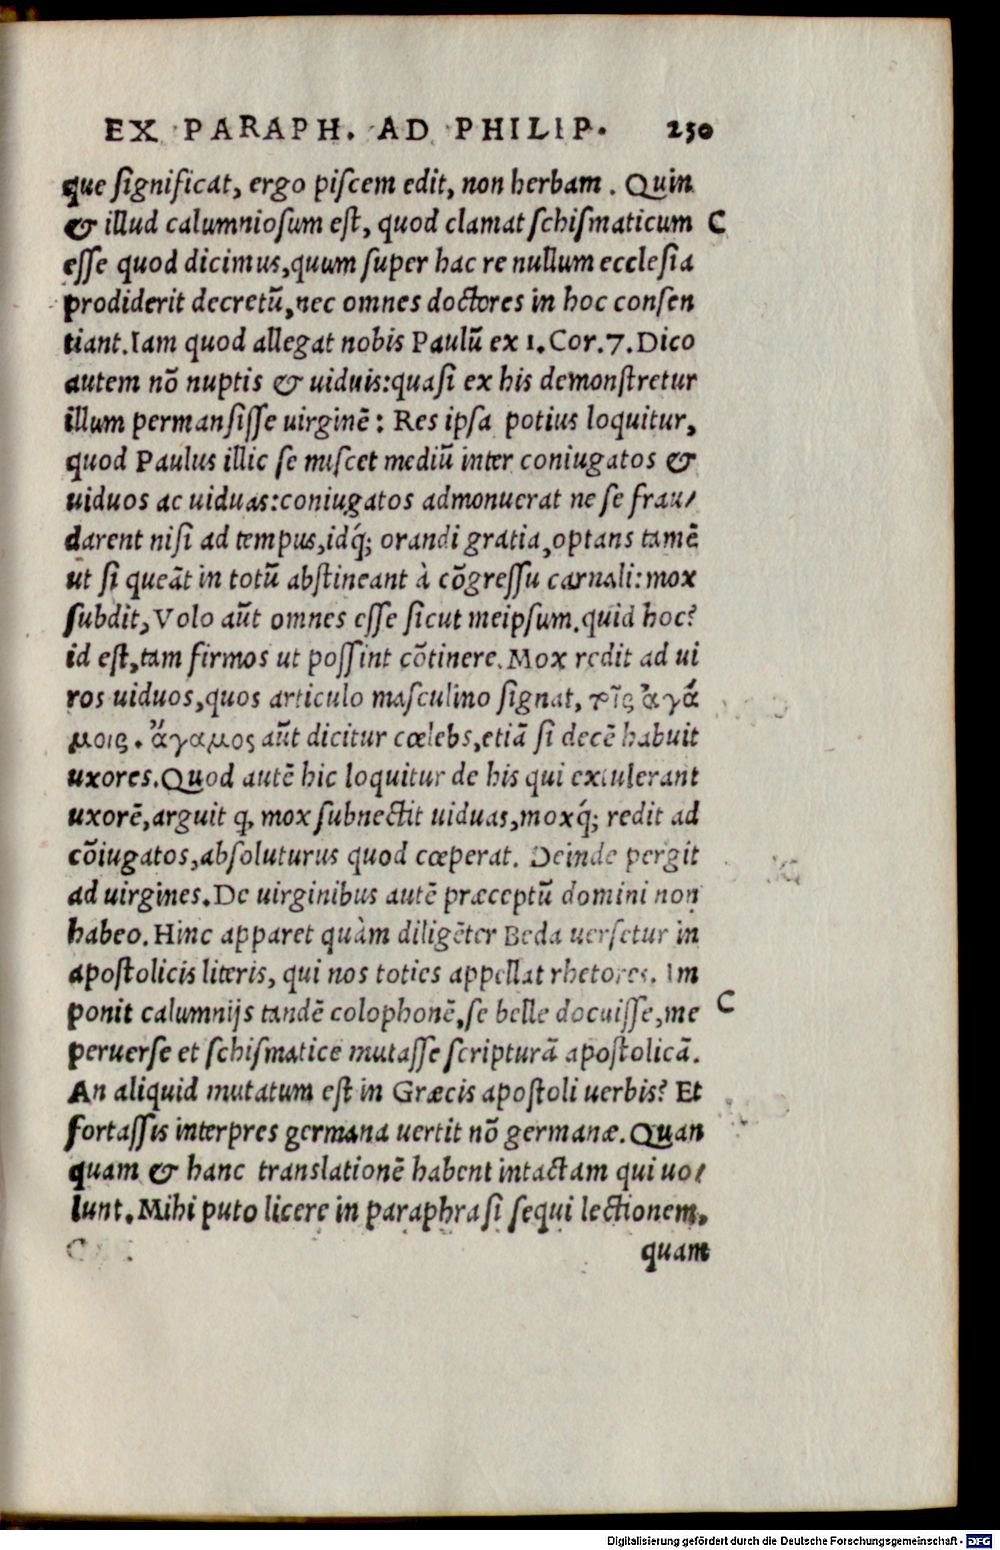 EX PARAPH. AD PHILIP. 250
que ſignificat, ergo piſcem edit, non herbam. Quin
& illud calumnioſum eſt, quod clamat ſchiſmaticum C
eſſe quod dicimus, quum ſuper hac re nullum eccleſia
prodiderit decretū, nec omnes doctores in hoc conſen
tiant. Iam quod allegat nobis Paulū ex 1. Cor. 7. Dico
autem nō nuptis & uiduis: quaſi ex his demonſtretur
illum permanſiſſe uirginē: Res ipſa potius loquitur,
quod Paulus illic ſe miſcet mediū inter coniugatos &
uiduos ac uiduas: coniugatos admonuerat ne ſe frau/
darent niſi ad tempus, idq́; orandi gratia, optans tamē
ut ſi queāt in totū abſtineant à cōgreſſu carnali: mox
ſubdit, Volo aūt omnes eſſe ſicut meipſum. quid hoc?
id eſt, tam firmos ut poſſint cōtinere. Mox redit ad ui
ros uiduos, quos articulo maſculino ſignat, τοῖς ἀγά
μοις. ἄγαμος aūt dicitur cœlebs, etiā ſi decē habuit
uxores. Quod autē hic loquitur de his qui extulerant
uxorē, arguit ꝙ mox ſubnectit uiduas, moxq́; redit ad
cōiugatos, abſoluturus quod cœperat. Deinde pergit
ad uirgines. De uirginibus autē præceptū domini non
habeo. Hinc apparet quàm diligēter Beda uerſetur in
apoſtolicis literis, qui nos toties appellat rhetores. Im
ponit calumnijs tandē colophonē, ſe belle docuiſſe, me C
peruerſe et ſchiſmatice mutaſſe ſcripturā apoſtolicā.
An aliquid mutatum eſt in Græcis apoſtoli uerbis? Et
fortaſſis interpres germana uertit nō germanæ. Quan
quam & hanc translationē habent intactam qui uo/
lunt. Mihi puto licere in paraphraſi ſequi lectionem,
quam
Digitalisierung gefördert durch die Deutsche Forschungsgemeinschaft - DFG